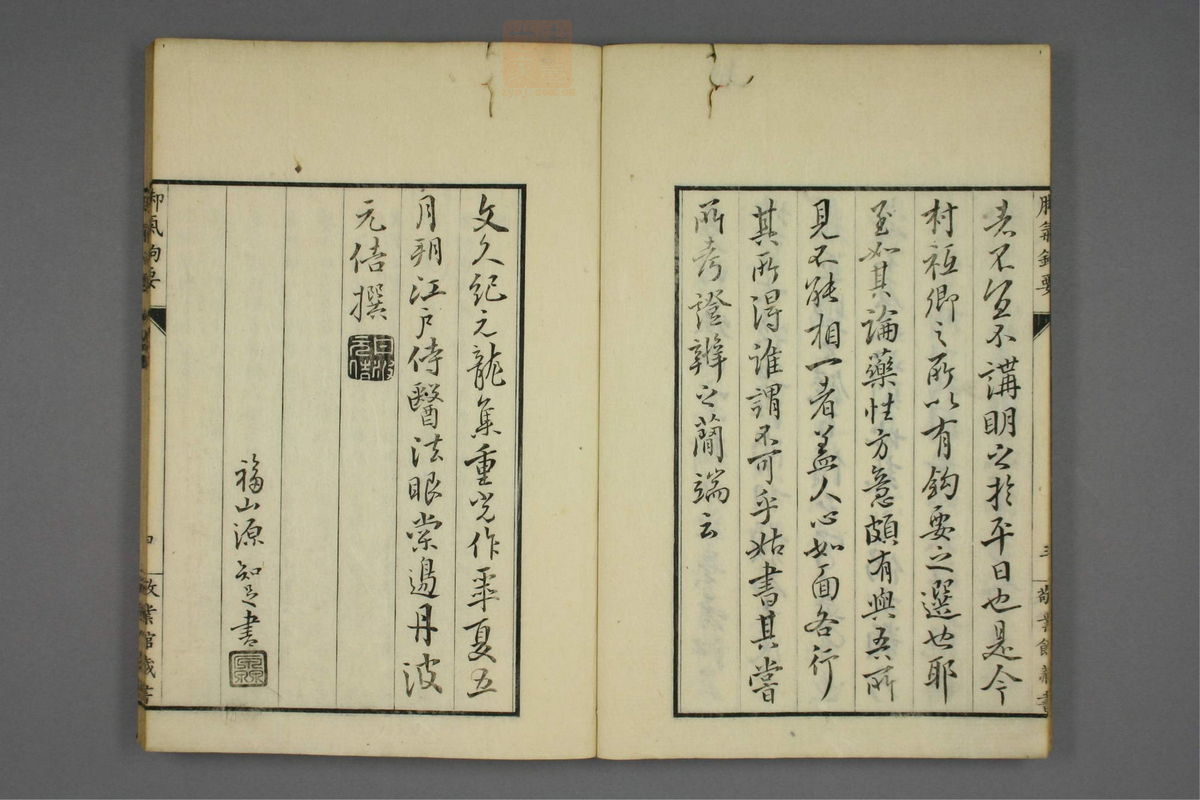 脚氣鉤要
者不宜不講明之於平日也是今
村祗卿之所以有鉤要之選也耶
至如其論藥性方意頗有與吾所
見不能相一者蓋人心如面各行
其所得誰謂不可乎姑書其嘗
所考證辨之蕳端云
三
敬業館藏書
文久紀元龍集重光作噩夏五
月朔江戶侍醫法眼棠邊丹波
元佶撰
福山源知足書
脚氣鉤要
四
敬業館藏書